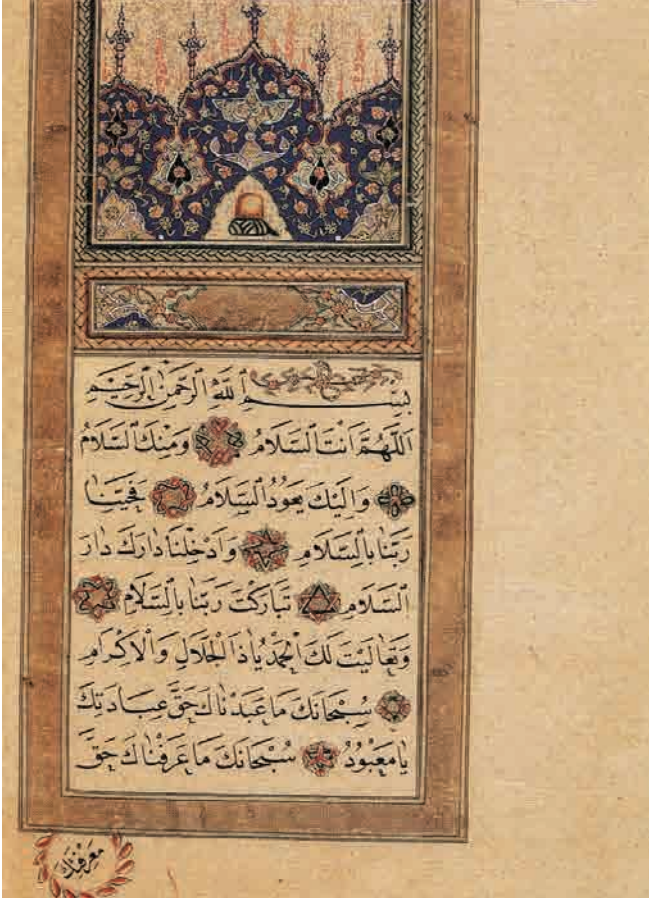 بِسْمِ ٱللَّهِ ٱلرَّحْمَٰنِ ٱلرَّحِيمِ
اَللّٰهُمَّ اَنْتَ السَّلَامُ وَمِنْكَ السَّلَامُ
وَاِلَيْكَ يَعُودُ السَّلَامُ فَحَيِّنَا
رَبَّنَا بِالسَّلَامِ وَاَدْخِلْنَا دَارَكَ دَارَ
السَّلَامِ تَبَارَكْتَ رَبَّنَا بِالسَّلَامِ
وَتَعَالَيْتَ لَكَ الْحَمْدُ يَا ذَا الْجَلَالِ وَالْاِكْرَامِ
سُبْحَانَكَ مَا عَبَدْنَاكَ حَقَّ عِبَادَتِكَ
يَا مَعْبُودُ سُبْحَانَكَ مَا عَرَفْنَاكَ حَقَّ
مَعْرِفَتِكَ